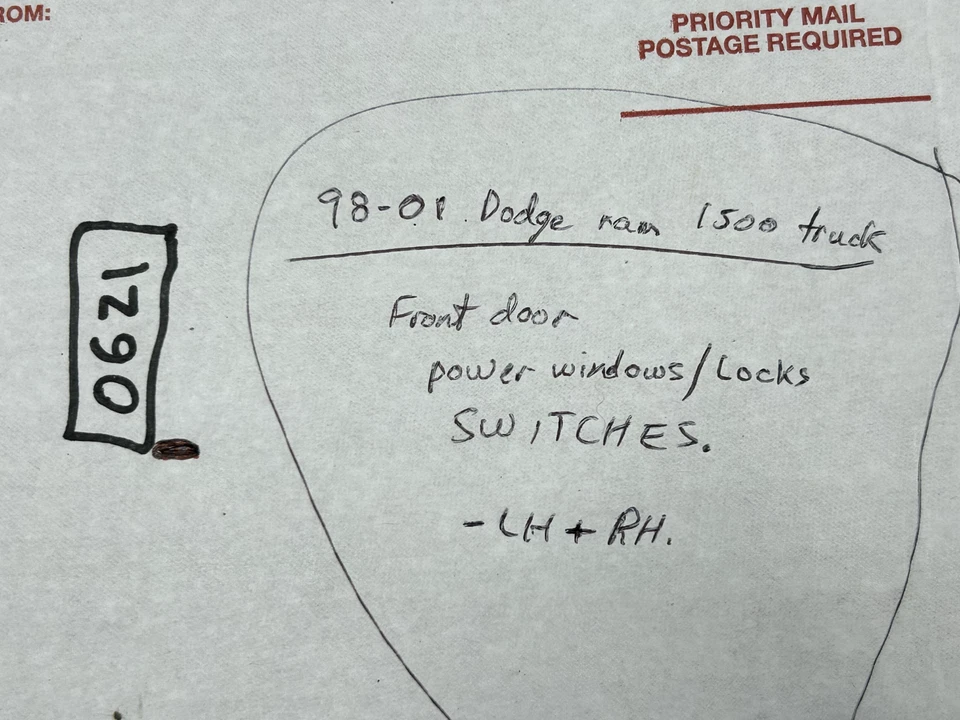 ROM:
PRIORITY MAIL
POSTAGE REQUIRED
98-01 Dodge ram 1500 truck
Front door
power windows/Locks
SWITCHES.
-LH + RH.
0621